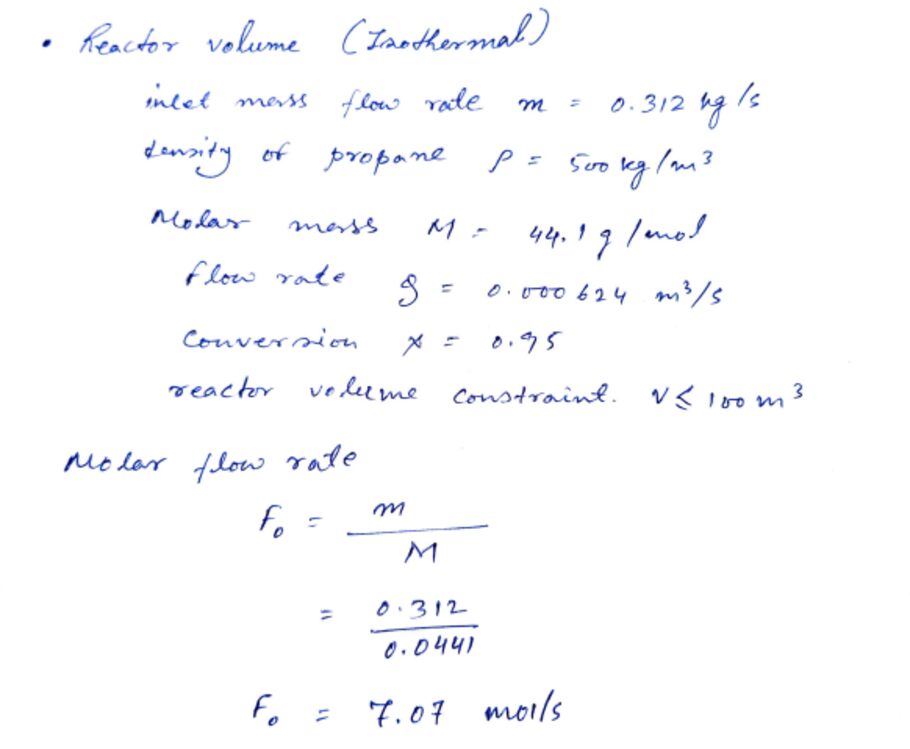 • Reactor volume (Isothermal)
inlet mass flow rate m = 0.312 kg/s
density of propane ρ = 500 kg/m³
Molar mass M = 44.1 g/mol
flow rate q = 0.000624 m³/s
Conversion x = 0.95
reactor volume constraint. V ≤ 100 m³
Molar flow rate
F₀ = m
M
= 0.312
0.0441
F₀ = 7.07 mol/s